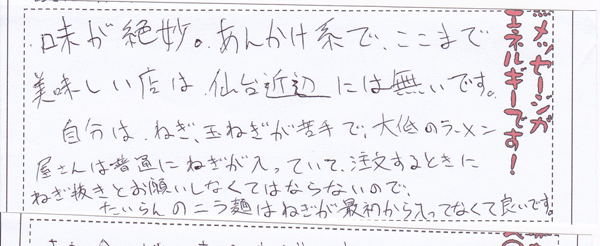 味が絶妙。あんかけ系で、ここまで
美味しい店は、仙台近辺には無いです。
自分は、ねぎ、玉ねぎが苦手で、大低のラーメン
屋さんは普通にねぎが入っていて、注文するときに
ねぎ抜きとお願いしなくてはならないので、
たいらんのニラ麺はねぎが最初から入ってなくて良いです。
メッセージが
エネルギーです！